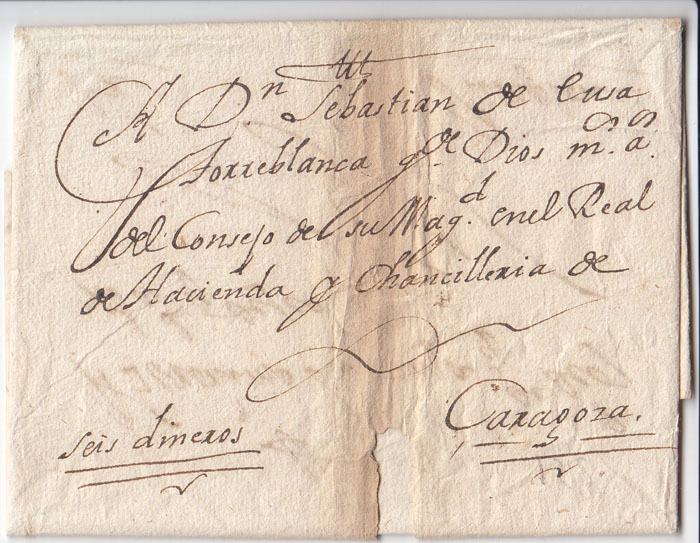 A Dn Sebastian de Eusa
Torreblanca gde Dios ms. as.
del Consejo de su Magd. en el Real
de Hacienda y Chancilleria de
Caragoza.
seis dineros